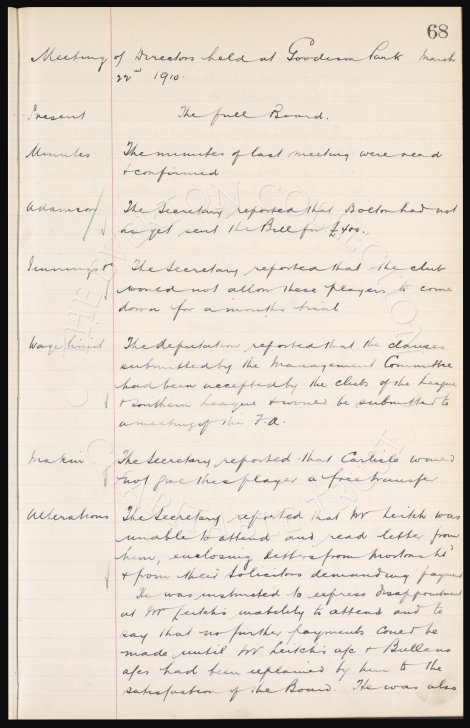 68
Meeting of Directors held at Goodison Park March
22nd 1910.
Present The full Board.
Minutes The minutes of last meeting were read
& confirmed
Adamson The Secretary reported that Bolton had not
as yet sent the Bill for £400.
Jennings & The Secretary reported that the club
would not allow these players to come
down for a months trial
Wage limit The deputation reported that the clauses
submitted by the Management Committee
had been accepted by the clubs of the League
& Southern League & would be submitted to
a meeting of the F.A.
Makin The Secretary reported that Carlisle would
not give this player a free transfer
Alterations The Secretary reported that Mr Leitch was
unable to attend and read letter from
him, enclosing letters from Mortons Ld
& from their Solicitors demanding payment
He was instructed to express disappointment
at Mr Leitch's inability to attend and to
say that no further payments could be
made until Mr Leitch's a/c & Bullens
a/cs had been explained by him to the
satisfaction of the Board. He was also
THE EVERTON COLLECTION
CHARITABLE TRUST